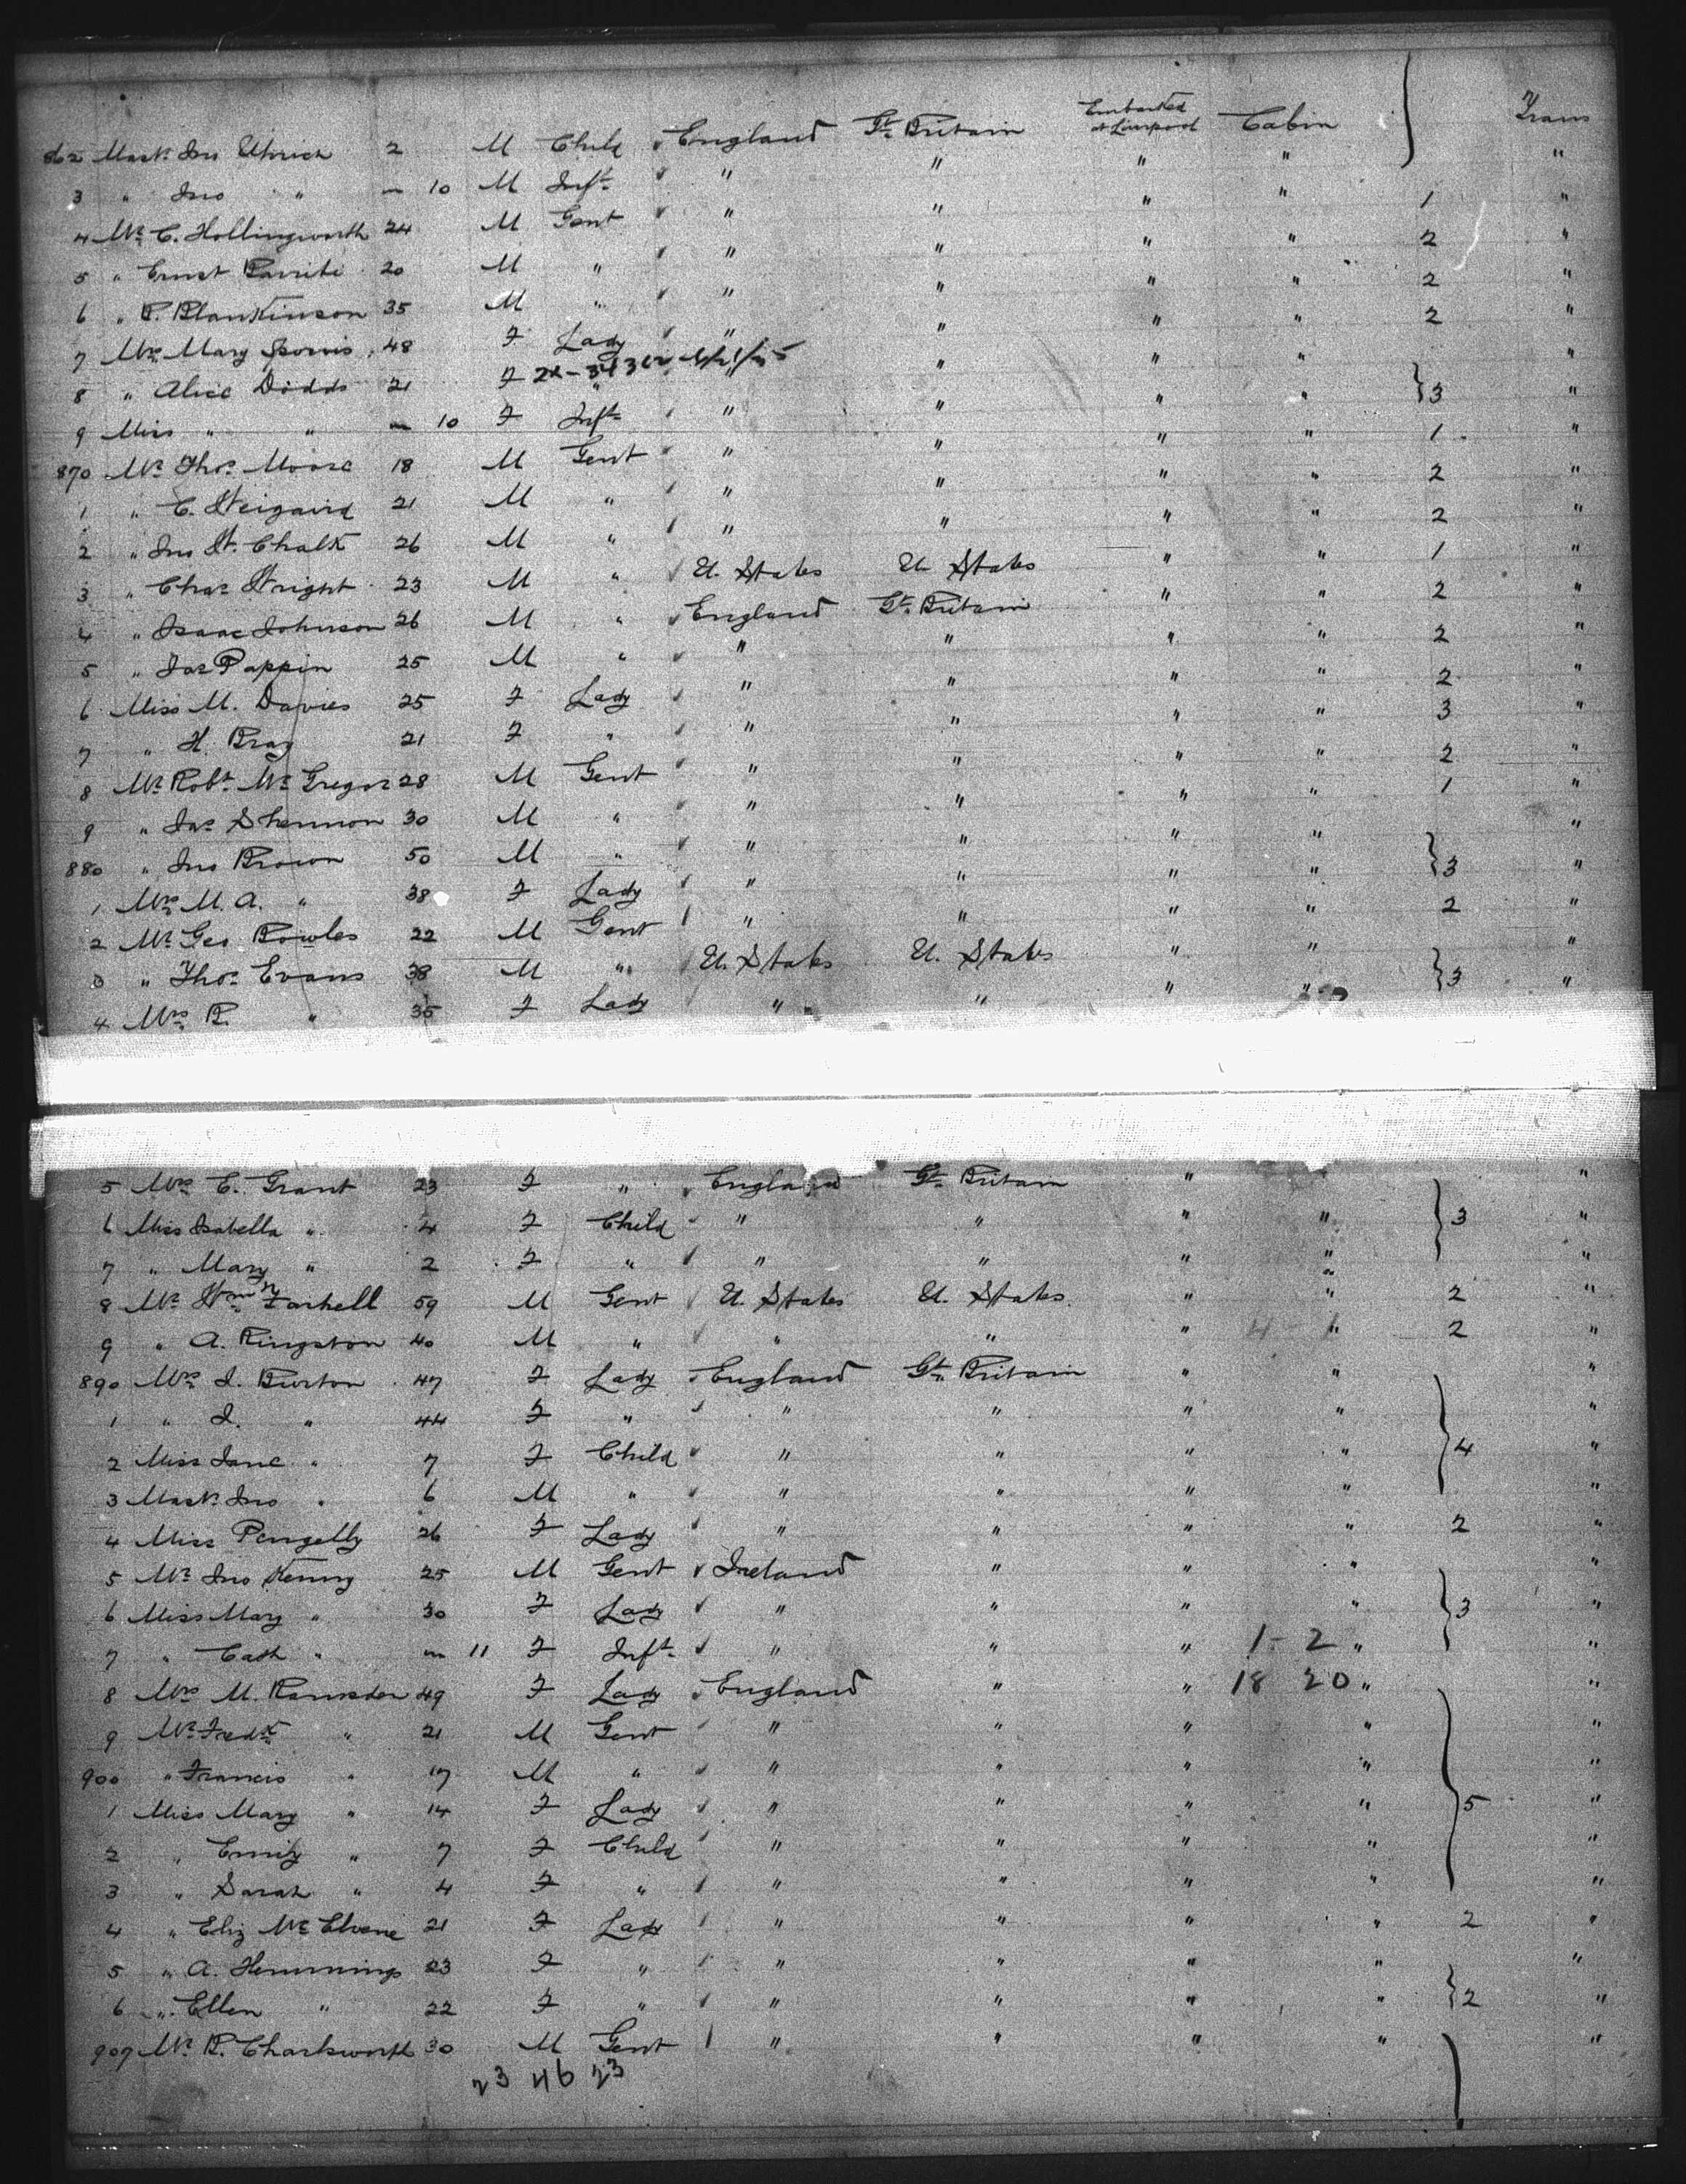 862 Mastr Jno Uhrich 2 M Child England Gt. Britain Embarked at Liverpool Cabin Trans
3 " Jno " — 10 M Inft " " " " "
4 Mr. C. Hollingworth 24 M Gent " " " " 1 "
5 " Ernst 20 M " " " " " 2 "
6 " P. Blankinson 35 M " " " " " 2 "
7 Mrs Mary 48 F Lady " " " " 2 "
8 " Alice Dodds 21 F " " " " "
9 Miss " " — 10 F Inft " " " " 3 "
870 Mr. Thos. Moore 18 M Gent " " " " 1 "
1 " C. 21 M " " " " " 2 "
2 " Jno W. Chalk 26 M " " " " " 2 "
3 " Chas Wright 23 M " U. States U. States " " 1 "
4 " Isaac Johnson 26 M " England Gt. Britain " " 2 "
5 " Jas Pappin 25 M " " " " " 2 "
6 Miss M. Davies 25 F Lady " " " " 2 "
7 " H. Bray 21 F " " " " " 3 "
8 Mr. Robt. Mc Gregor 28 M Gent " " " " 2 "
9 " Jas Shennon 30 M " " " " " 1 "
880 " Jno Brown 50 M " " " " " "
1 Mrs M. A. " 38 F Lady " " " " 3 "
2 Mr. Geo Bowles 22 M Gent " " " " 2 "
3 " Thos. Evans 38 M " U. States U. States " " "
4 Mrs R. " 35 F Lady " " " " 3 "
5 Mrs E. Grant 23 F " England Gt. Britain " "
6 Miss Isabella " 4 F Child " " " " 3 "
7 " Mary " 2 F " " " " " "
8 Mr. Wm Tarhell 59 M Gent U. States U. States " " 2 "
9 " A. Kingston 40 M " " " " " 2 "
890 Mrs J. Burton 47 F Lady England Gt. Britain " " "
1 " J. " 44 F " " " " " "
2 Miss Jane " 7 F Child " " " " 4 "
3 Mastr Jno " 6 M " " " " " "
4 Miss Pengelly 26 F Lady " " " " 2 "
5 Mr. Jno Kenny 25 M Gent Ireland " " " "
6 Miss Mary " 30 F Lady " " " " 3 "
7 " Cath " — 11 F Inft " " " 1 - 2 " "
8 Mrs M. Ramsden 49 F Lady England " " 18 20 " "
9 Mr. Fredk " 21 M Gent " " " " "
900 " Francis " 17 M " " " " " "
1 Miss Mary " 14 F Lady " " " " 5 "
2 " Emily " 7 F Child " " " " "
3 " Sarah " 4 F " " " " " "
4 " Eliz Mc Elvene 21 F Lady " " " " 2 "
5 " A. Hemmings 23 F " " " " " "
6 " Ellen " 22 F " " " " " 2 "
907 Mr. R. Charlsworth 30 M Gent " " " " "
23 46 23